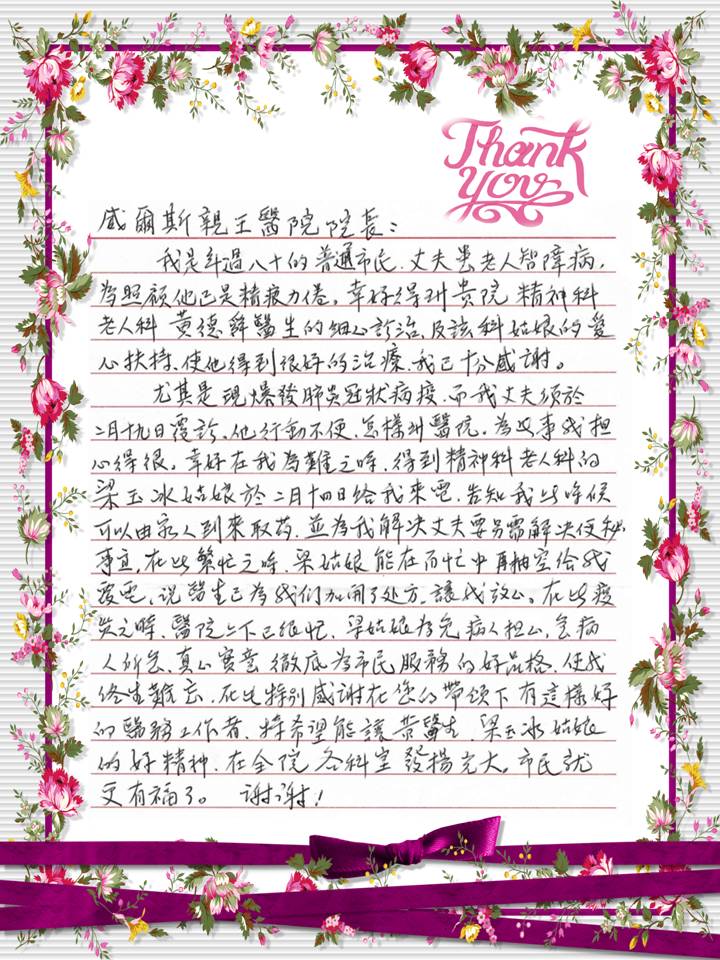 Thank
you
威爾斯親王醫院院長：
我是年過八十的普通市民，丈夫患老人智障病，
為照顧他已是精疲力倦。幸好得到貴院精神科
老人科黃德舜醫生的細心診治，及該科姑娘的愛
心扶持、使他得到很好的治療，我已十分感谢。
尤其是現爆發肺炎冠狀病疫，而我丈夫須於
二月十九日覆診，他行動不便，怎樣到醫院，為此事我担
心得很。幸好在我為難之時，得到精神科老人科的
梁玉冰姑娘於二月十四日給我來電，告知我此時候
可以由家人到來取药，並為我解决丈夫要另需解决便秘
事宜，在此繁忙之時，梁姑娘能在百忙中再抽空给我
覆電，说醫生已為我们加開了处方，讓我放心。在此疫
災之時，醫院上下已很忙，梁姑娘為免病人担心，急病
人所急，真心實意徹底為市民服務的好品格，使我
终生難忘，在此特别感谢在您的带领下有這樣好
的醫務工作者，特希望能讓黃醫生、梁玉冰姑娘
的好精神，在全院各科室發揚光大，市民就
更有福了。 谢谢！